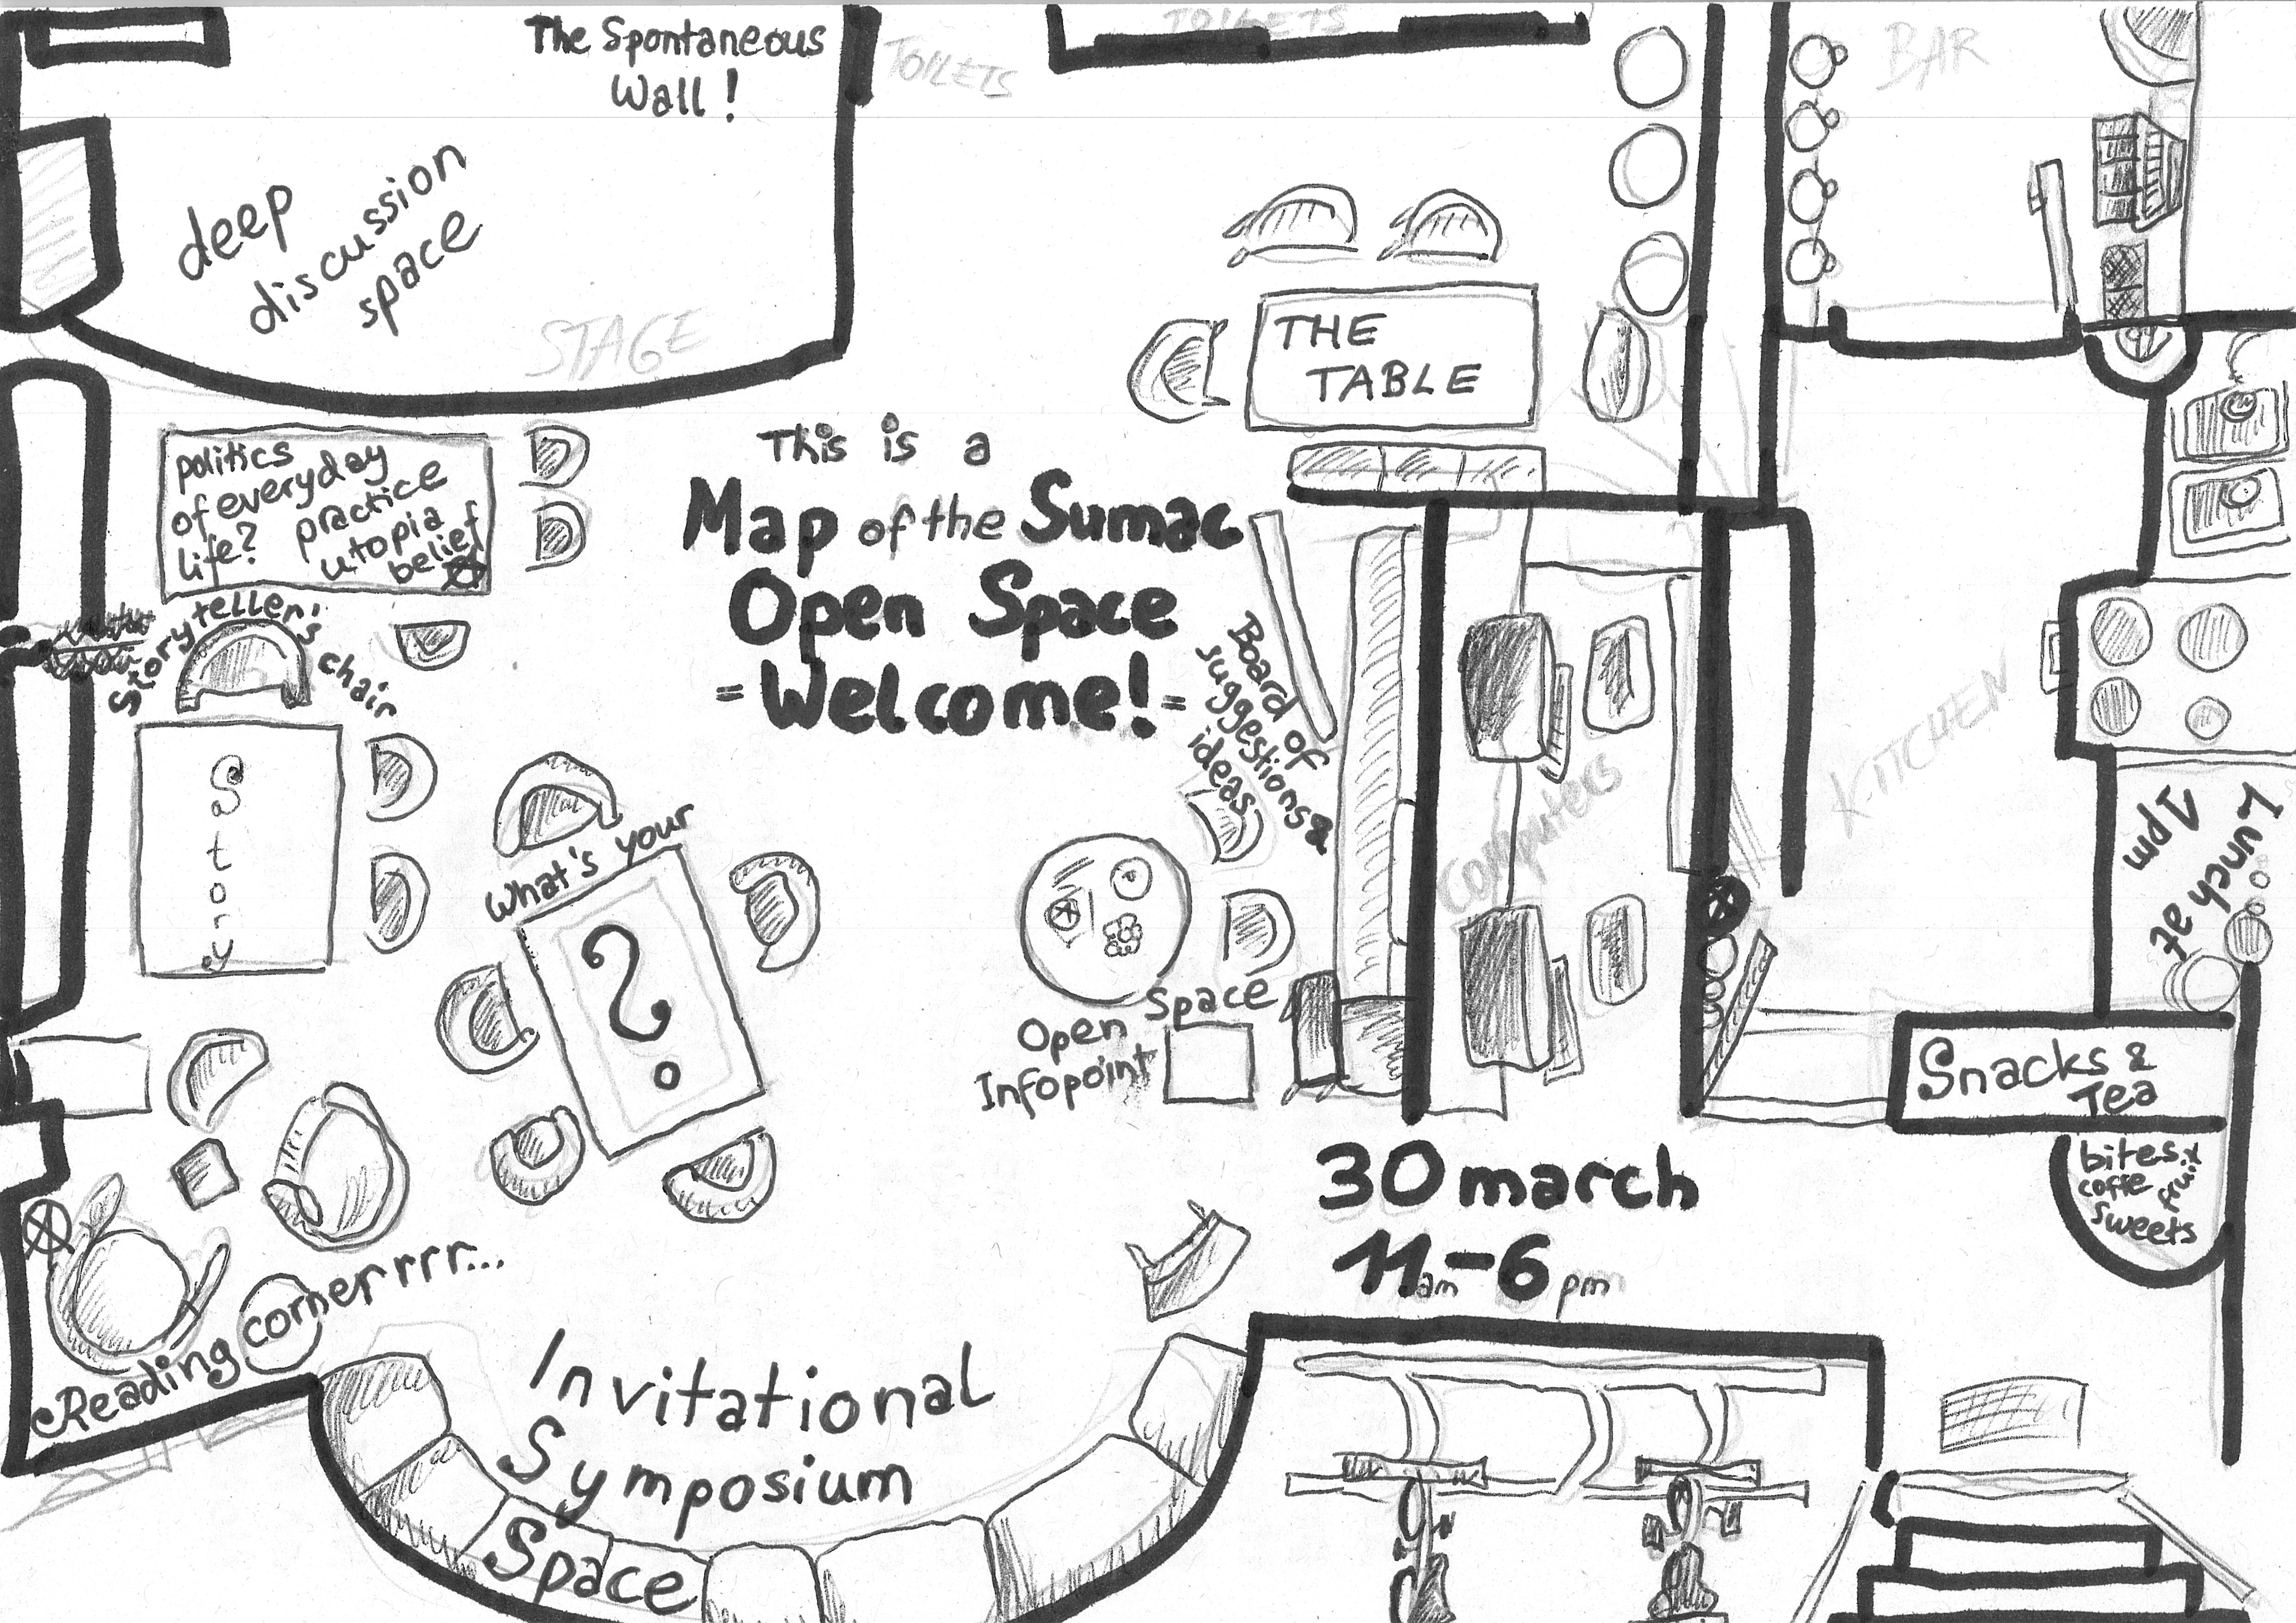 The Spontaneous
Wall !
TOILETS
TOILETS
BAR
deep
discussion
space
STAGE
THE
TABLE
politics
of everyday
life? practice
utopia
belief
This is a
Map of the Sumac
Open Space
= Welcome! =
Storyteller's chair
Story
Board of
suggestions &
ideas
Computers
KITCHEN
Lunch at
1pm
What's your
?
Open Space
Infopoint
Snacks &
Tea
bites
coffe fruit
sweets
30 march
11am-6pm
Reading cornerrrr...
Invitational
Symposium
Space